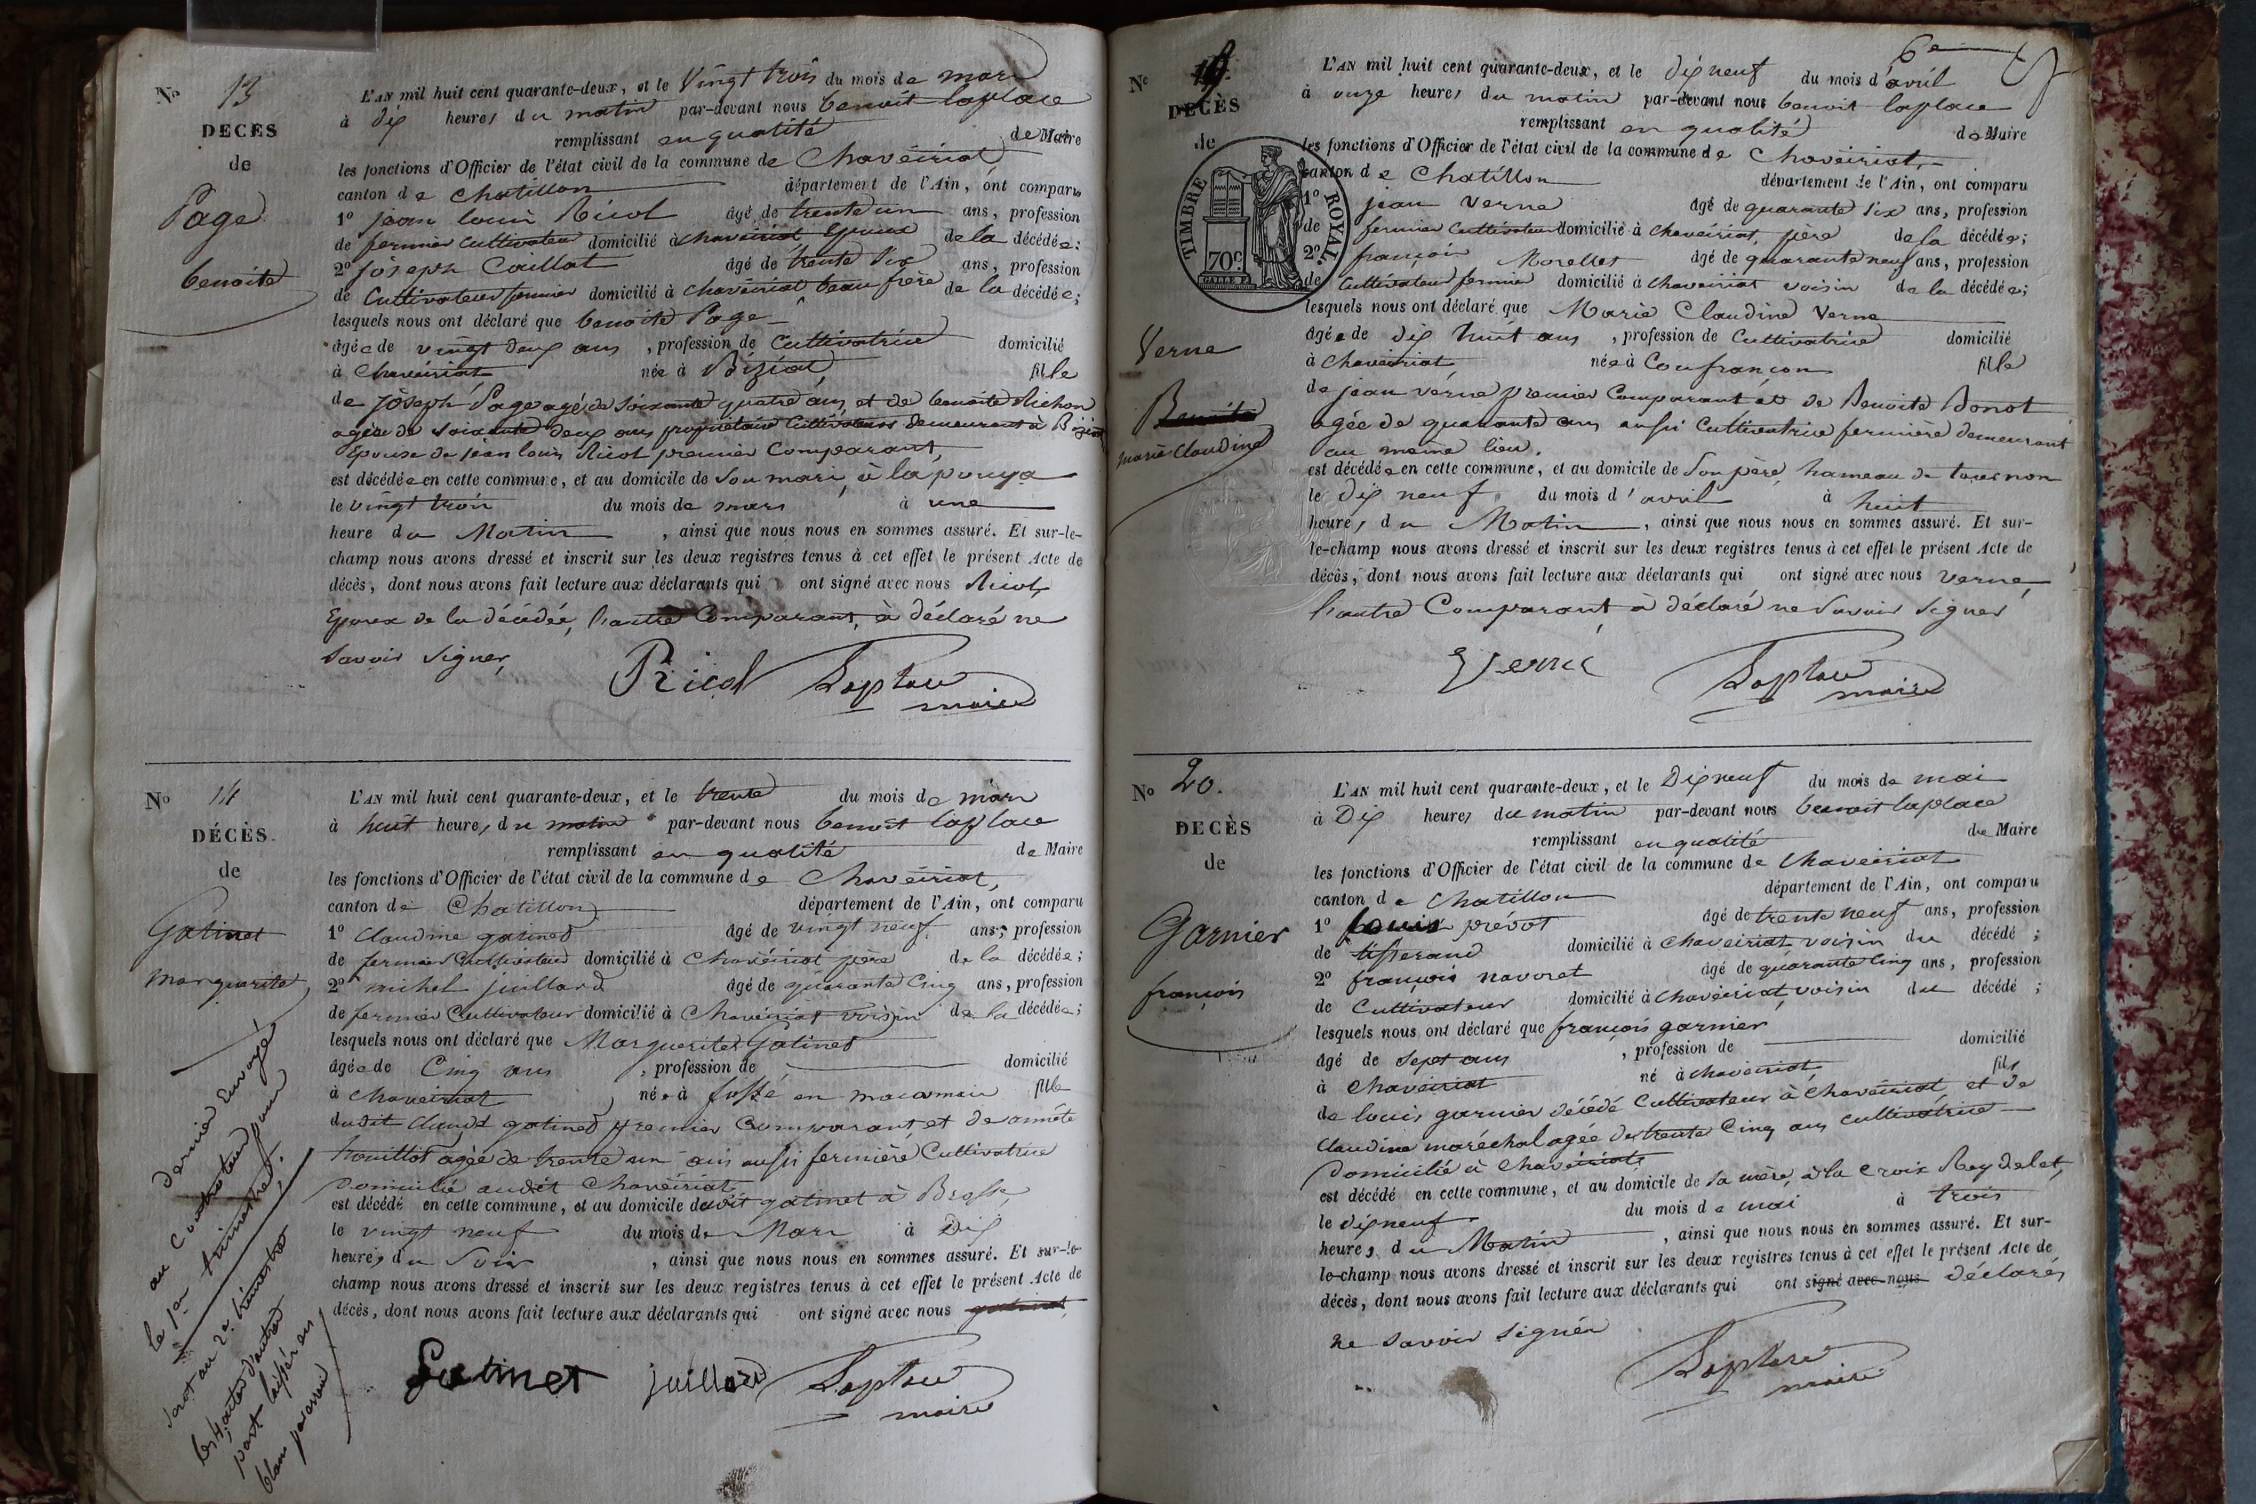 No 13
DÉCÈS
de
Page
benoite
L'AN mil huit cent quarante-deux, et le Vingt trois du mois de mars
à dix heures du matin par-devant nous benoit laplace
remplissant en qualité de Maire
les fonctions d'Officier de l'état civil de la commune de Chaveiriat
canton de Chatillon département de l'Ain, ont comparu
1o jean louis Ricol âgé de trente un ans, profession
de fermier Cultivateur domicilié à chaveiriat Epoux de la décédée;
2o joseph Caillat âgé de trente six ans, profession
de Cultivateur fermier domicilié à chaveiriat beau frère de la décédée;
lesquels nous ont déclaré que benoite Page
âgée de vingt deux ans, profession de Cultivatrice domicilié
à Chaveiriat née à Biziat fille
de joseph Page agé de soixante quatre ans et de benoite Michon
agée de soixante deux ans propriétaire Cultivateurs demeurant à Biziat
Epouse de jean louis Ricol premier Comparant
est décédée en cette commune, et au domicile de Son mari, à la pouya
le vingt trois du mois de mars à une
heure du Matin, ainsi que nous nous en sommes assuré. Et sur-le-
champ nous avons dressé et inscrit sur les deux registres tenus à cet effet le présent Acte de
décès, dont nous avons fait lecture aux déclarants qui ont signé avec nous Ricol
Epoux de la décédée, l'autre Comparant, à déclaré ne
Savoir Signer,
Ricol Laplace
maire
No 14
DÉCÈS
de
Gatinet
marguerite
L'AN mil huit cent quarante-deux, et le trente du mois de mars
à huit heures du matin par-devant nous benoit laplace
remplissant en qualité de Maire
les fonctions d'Officier de l'état civil de la commune de Chaveiriat,
canton de Chatillon département de l'Ain, ont comparu
1o Claudine gatinet âgé de vingt neuf ans, profession
de fermier Cultivateur domicilié à Chavéiriat père de la décédée;
2o michel juillard âgé de quarante Cinq ans, profession
de fermier Cultivateur domicilié à Chavéiriat voisin de la décédée;
lesquels nous ont déclaré que Marguerite Gatinet
âgée de Cinq ans, profession de domicilié
à chaveiriat née à fossé en maconnais fille
dudit Claude gatinet premier Comparant et de annéte
trouillot agée de trente un ans aussi fermière Cultivatrice
Domicilié audit Chaveiriat
est décédé en cette commune, et au domicile dudit gatinet à Brosse
le vingt neuf du mois de Mars à Dix
heures du Soir, ainsi que nous nous en sommes assuré. Et sur-le-
champ nous avons dressé et inscrit sur les deux registres tenus à cet effet le présent Acte de
décès, dont nous avons fait lecture aux déclarants qui ont signé avec nous gatinet
Gatinet juillard Laplace
maire
Dernier Envoyé
au Controleur pour
le 1er trimestre.
Sont au 2e trimestre
les 4 actes d'autre
part laissés en
blanc par erreur
6e
No 19.
DÉCÈS
de
TIMBRE ROYAL.
70c
Verne
Benoite
marie Claudine
L'AN mil huit cent quarante-deux, et le Dix neuf du mois d'avril
à onze heures du matin par-devant nous benoit laplace
remplissant en qualité de Maire
les fonctions d'Officier de l'état civil de la commune de Chaveiriat,
canton de Chatillon département de l'Ain, ont comparu
1o jean Verne âgé de quarante six ans, profession
de fermier Cultivateur domicilié à Chaveiriat, père de la décédée;
2o françois Morellet âgé de quarante neuf ans, profession
de Cultivateur fermier domicilié à chaveiriat voisin de la décédée;
lesquels nous ont déclaré que Marie Claudine Verne
âgée de dix huit ans, profession de Cultivatrice domicilié
à chaveiriat, née à Confrançon fille
de jean verne premier Comparant et de Benoite Donot
agée de quarante ans aussi Cultivatrice fermière demeurant
au même lieu.
est décédée en cette commune, et au domicile de Son père, hameau de tournon
le Dix neuf du mois d'avril à huit
heures du Matin, ainsi que nous nous en sommes assuré. Et sur-
le-champ nous avons dressé et inscrit sur les deux registres tenus à cet effet le présent Acte de
décès, dont nous avons fait lecture aux déclarants qui ont signé avec nous Verne
l'autre Comparant à déclaré ne Savoir Signer
Verne Laplace
maire
No 20.
DÉCÈS
de
Garnier
françois
L'AN mil huit cent quarante-deux, et le Dix neuf du mois de mai
à Dix heures du matin par-devant nous benoit laplace
remplissant en qualité de Maire
les fonctions d'Officier de l'état civil de la commune de Chaveiriat
canton de Chatillon département de l'Ain, ont comparu
1o louis prévot âgé de trente neuf ans, profession
de tisserand domicilié à Chaveiriat voisin du décédé;
2o françois navoret âgé de quarante Cinq ans, profession
de Cultivateur domicilié à Chaveiriat, voisin du décédé;
lesquels nous ont déclaré que françois garnier
âgé de sept ans, profession de domicilié
à Chaveiriat né à chaveiriat fils
de louis garnier décédé Cultivateur à Chaveiriat et de
Claudine maréchal agée de trente Cinq ans cultivatrice
Domicilié à Chaveiriat
est décédé en cette commune, et au domicile de Sa mère, à la Croix Reydelet,
le dix neuf du mois de mai à trois
heures du Matin, ainsi que nous nous en sommes assuré. Et sur-
le-champ nous avons dressé et inscrit sur les deux registres tenus à cet effet le présent Acte de
décès, dont nous avons fait lecture aux déclarants qui ont signé avec nous déclarés
ne savoir signer
Laplace
maire